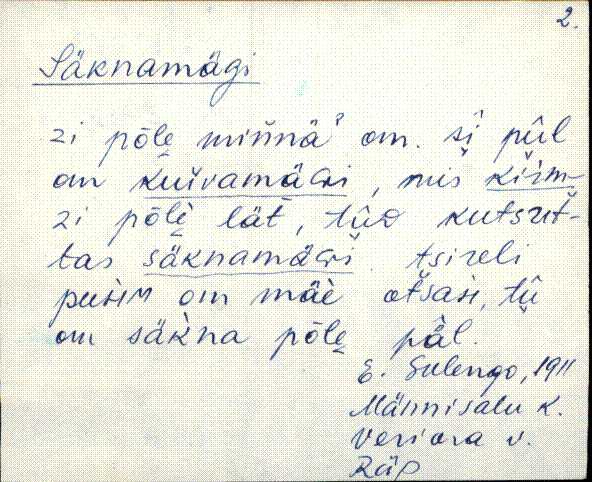 2.
Säknamägi
zi põle minnä? om. si pül
om kuivamäGi, mis kiim-
zi põlè lät, tûD kutsut-
tas säknamäGi. tsireli
puhm om mäè otsah, tû
om säkna põle päl.
E. Sulengo, 1911
Männisalu k.
Veriora v.
Räp